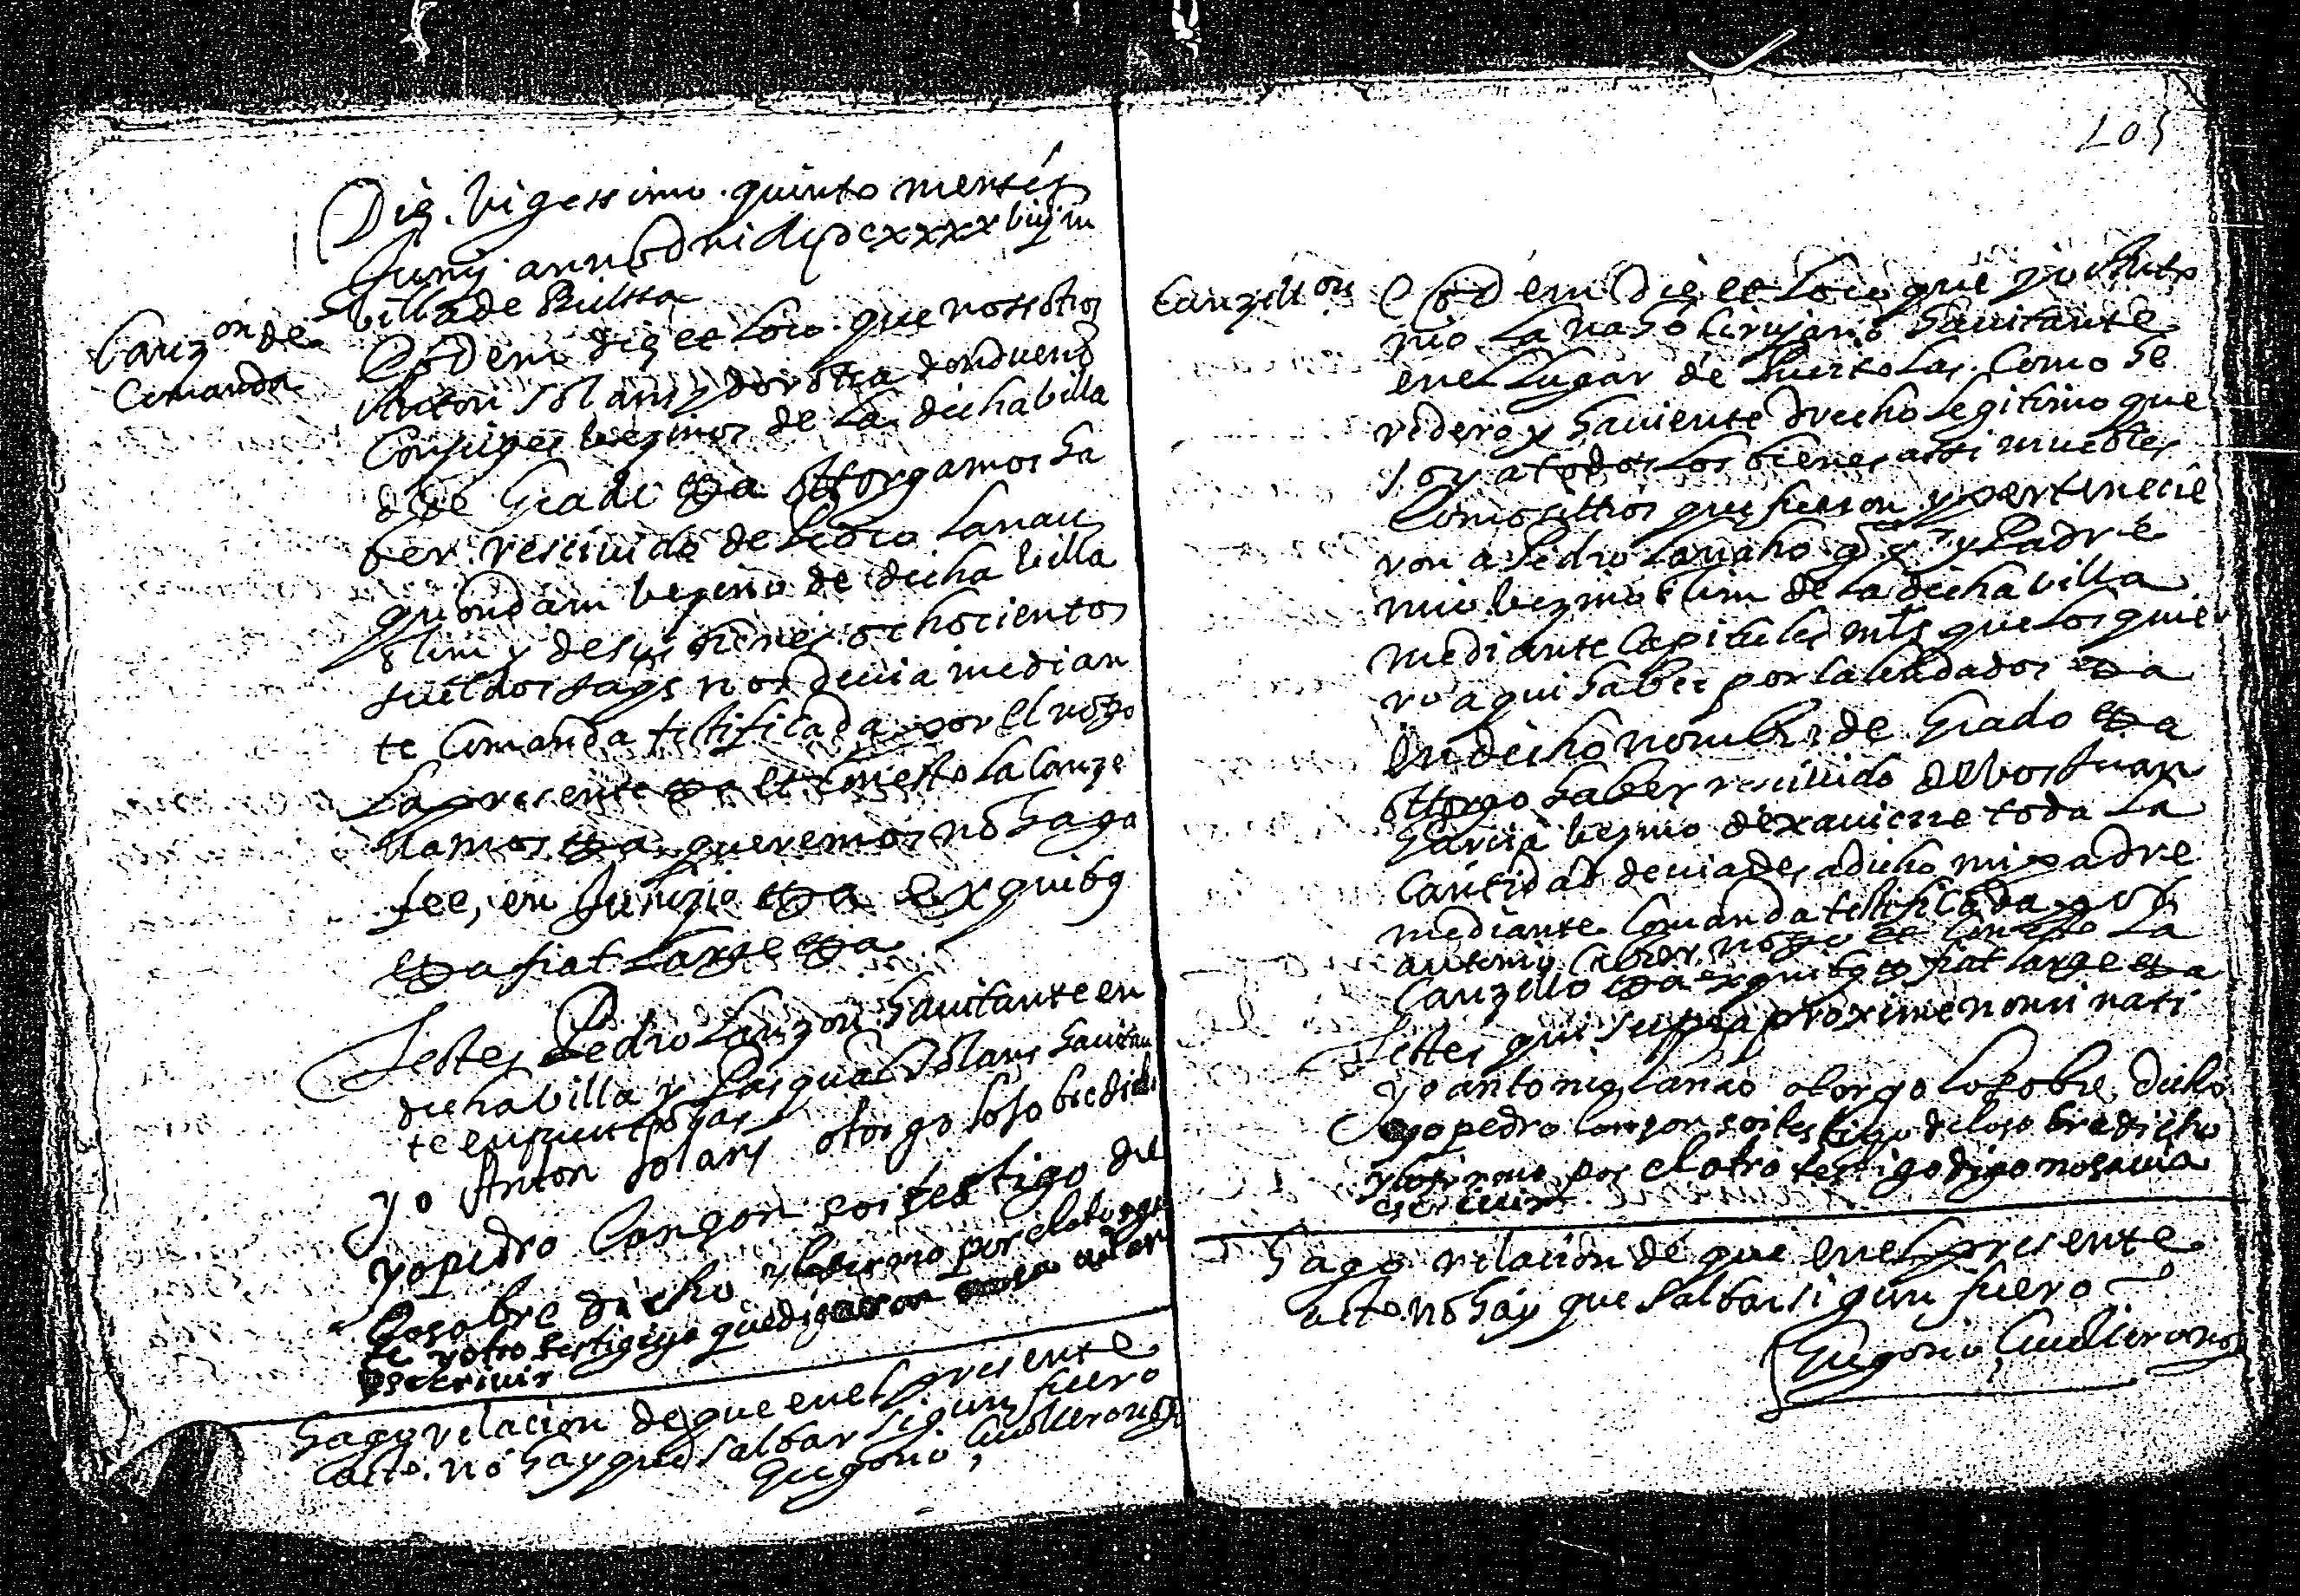 Die. vigessimo. quinto mensis
Junij. anno dni
villa de Bielssa
Canzon de
Comanda
Eodem die et loco. que nosotros
Anton Solans y dorotea
Conjuges vezinos de la dicha villa
de Grado etta ottorgamos ha
ber. rescivido de Pedro Lanau
quondam vezino de dicha villa
olim y de sus bienes ochocientos
sueldos jaqs nos devia median
te Comanda testificada por el noto
La presente etta et Con esto La Canze
llamos etta queremos no haga
fee, en Juyzio etta Ex quibs
etta fiat Large etta
Testes Pedro Canzon havitante en
dicha villa y Pasqual Solans havitan
te en puertolas
yo Anton Solans otorgo lo sobredicho
yo pedro Canzon soi testigo de
lo sobre dicho y lo firmo por
y otro testigo que digeron
escrivir
Hago relacion de que en el presente
acto. no hay que salbar sigun fuero
Gregorio,
105
Canzellon
Eodem die et Loco que yo Anto
nio Lanaho Cirujano havitante
en el Lugar de Puertolas. Como he
redero y haviente drecho legitimo que
soy a todos los bienes assi muebles
Como sittios que fueron y pertenecie
ron a Pedro Lanaho y Padre
mio vezino olim de la dicha villa
mediante Capitules mtls que los quie
ro aqui haber por calendados etta
En dicho nombre de Grado etta
ottorgo haber rescivido de bos Juan
Garcia vezino de xavierre toda La
Cantidad deviades a dicho mi padre
mediante Comanda testificada por
antonio noto et Con esto La
Canzello etta ex quibs fiat large etta
Testes qui supra proxime nominati
yo antonio lanao otorgo lo sobre dicho
yo pedro Canzon soi testigo de lo sobre dicho
y lo firmo por el otro testigo dijo no savia
escrivir
Hago relacion de que en el presente
acto. no hay que salbar sigun fuero
Gregorio,